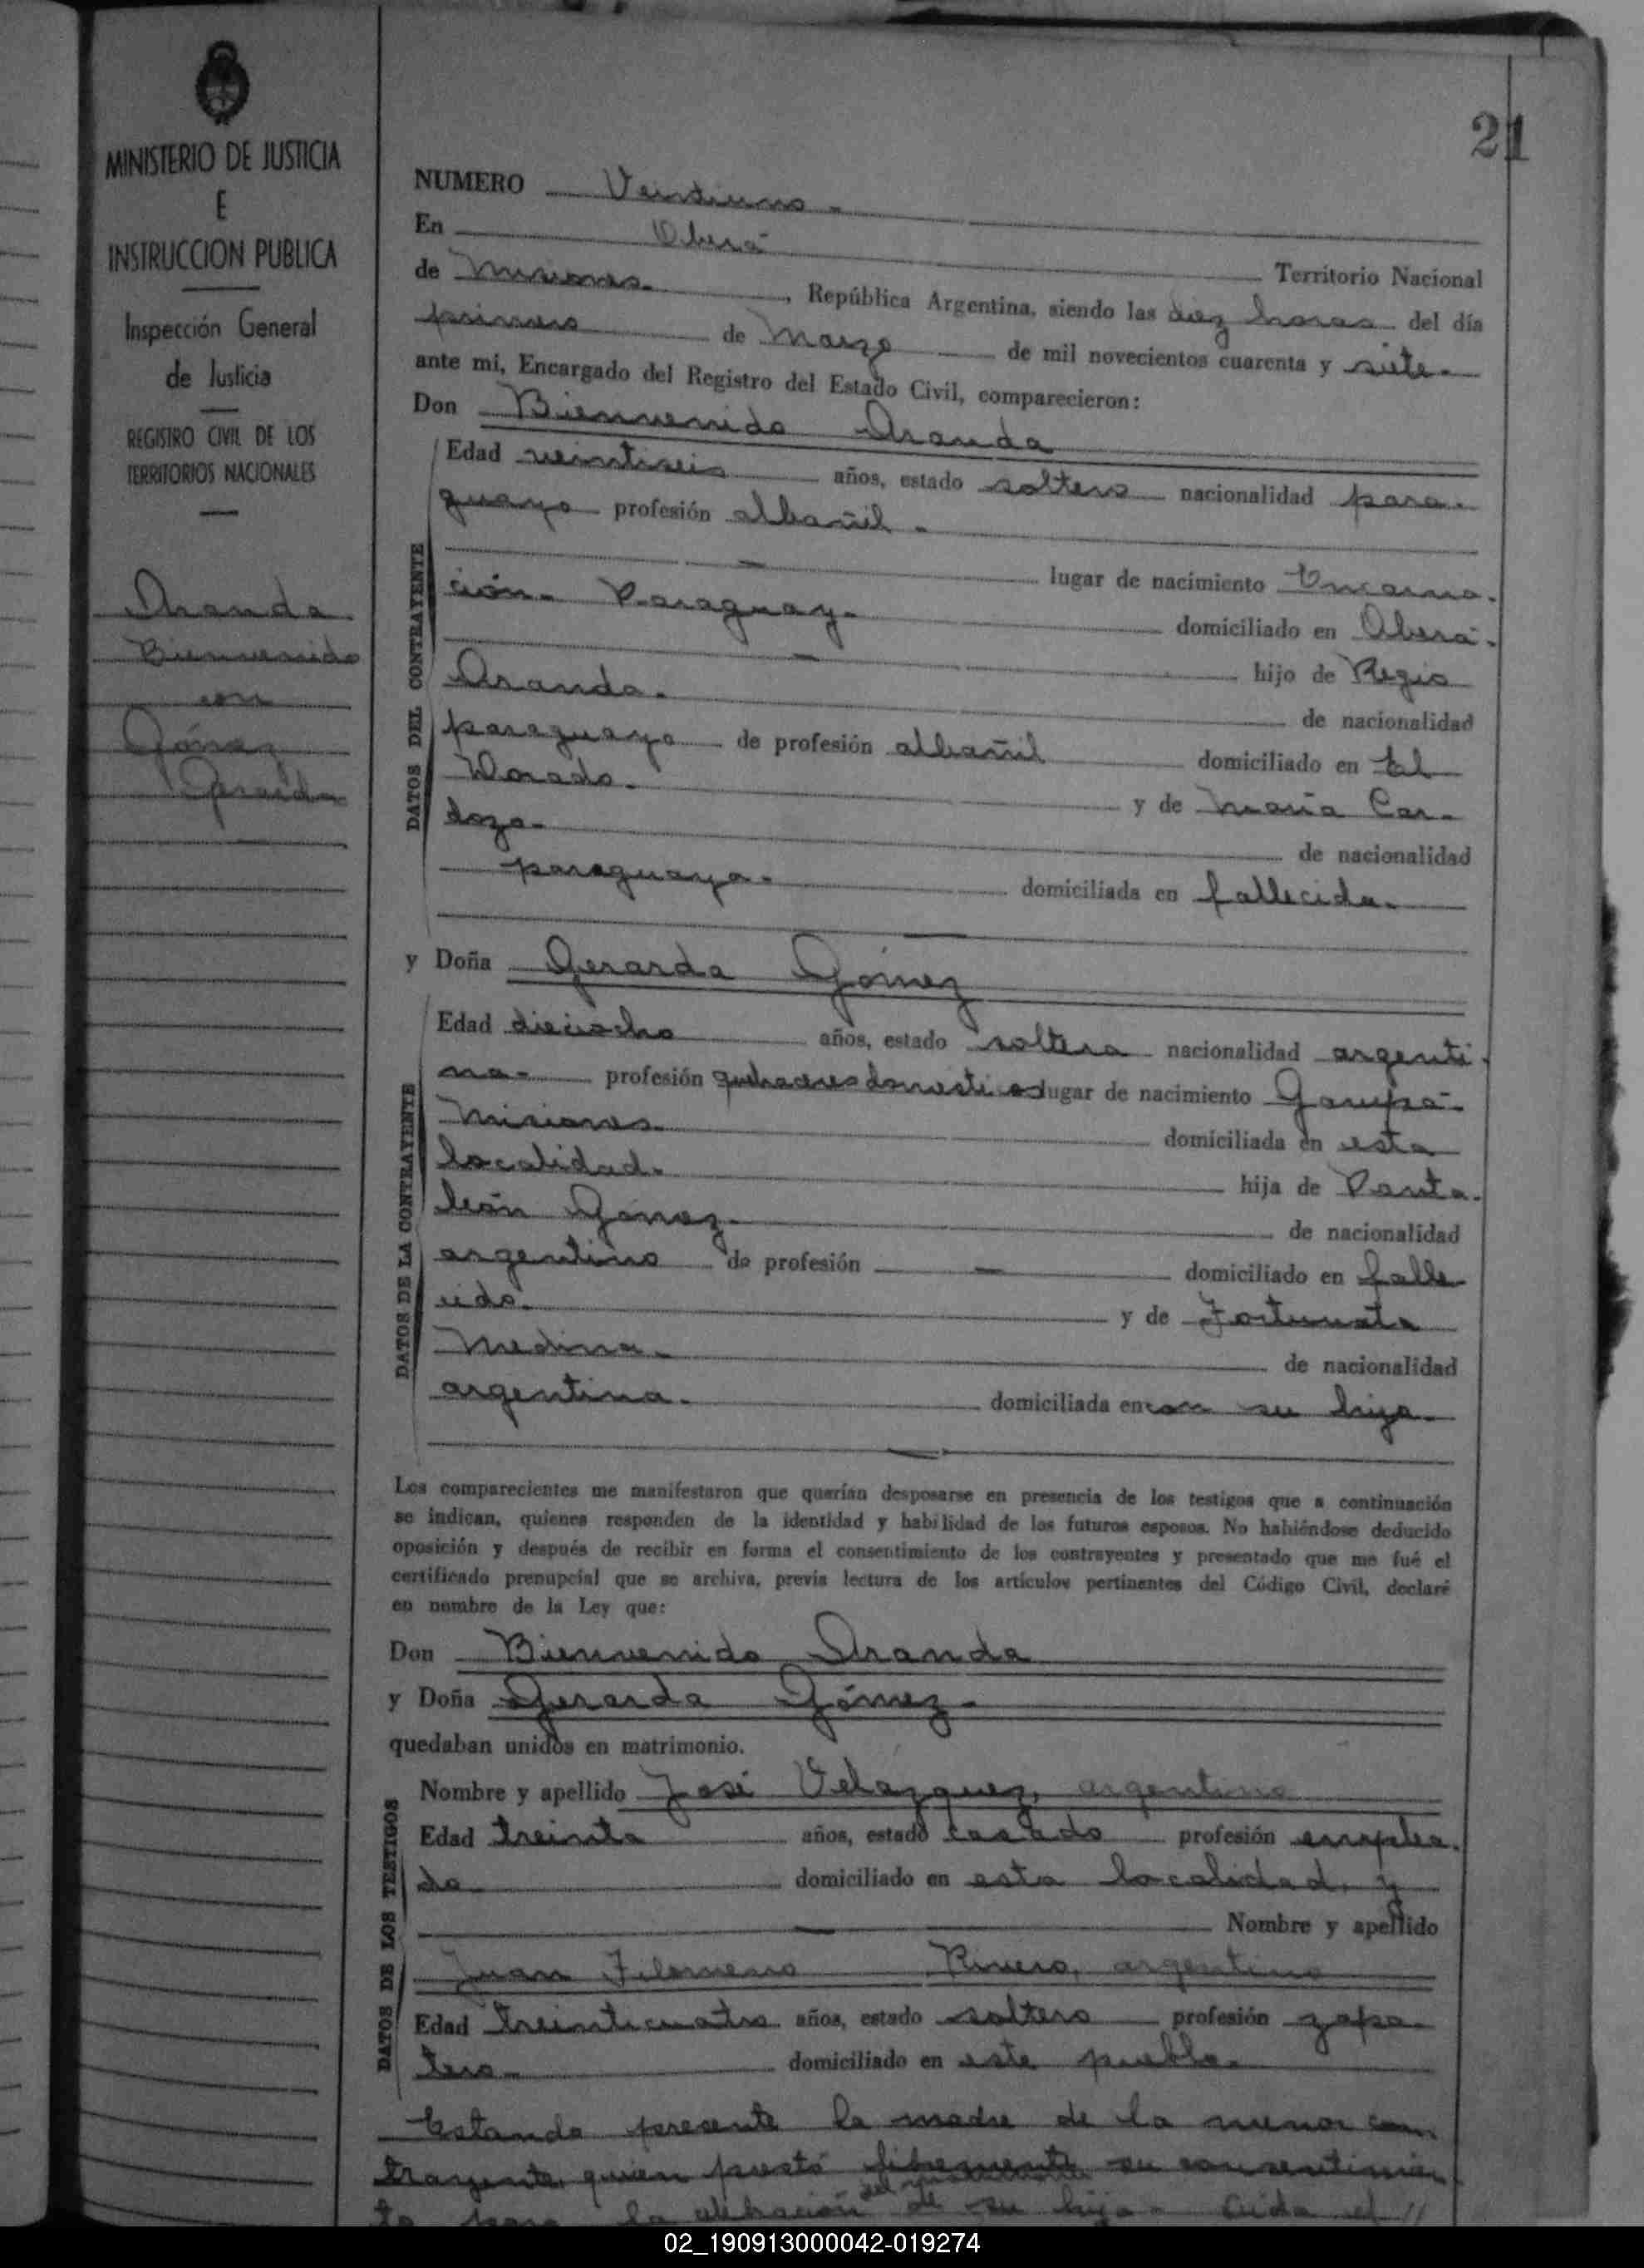 21
MINISTERIO DE JUSTICIA
E
INSTRUCCION PUBLICA
Inspección General
de Justicia
REGISTRO CIVIL DE LOS
TERRITORIOS NACIONALES
Aranda
Bienvenido
con
Gómez
Gerarda
NUMERO Veintiuno.-
En Oberá Territorio Nacional
de Misiones.- , República Argentina, siendo las diez horas del día
primero de Marzo de mil novecientos cuarenta y siete.-
ante mi, Encargado del Registro del Estado Civil, comparecieron:
Don Bienvenido Aranda
DATOS DEL CONTRAYENTE
Edad veintiseis años, estado soltero nacionalidad para-
guayo profesión albañil.-
lugar de nacimiento Encarna-
ción.- Paraguay.- domiciliado en Oberá.-
hijo de Regio
Aranda.- de nacionalidad
paraguayo de profesión albañil domiciliado en El
Dorado.- y de María Car-
doza.- de nacionalidad
paraguaya.- domiciliada en fallecida.-
y Doña Gerarda Gómez
DATOS DE LA CONTRAYENTE
Edad dieciocho años, estado soltera nacionalidad argenti-
na.- profesión quehaceres domesticos lugar de nacimiento Garupá-
Misiones.- domiciliada en esta
localidad.- hija de Panta-
león Gómez.- de nacionalidad
argentino de profesión — domiciliado en falle-
cido.- y de Fortunata
Medina.- de nacionalidad
argentina.- domiciliada en con su hija.-
Los comparecientes me manifestaron que querían desposarse en presencia de los testigos que a continuación
se indican, quienes responden de la identidad y habilidad de los futuros esposos. No habiéndose deducido
oposición y después de recibir en forma el consentimiento de los contrayentes y presentado que me fué el
certificado prenupcial que se archiva, previa lectura de los artículos pertinentes del Código Civil, declaré
en nombre de la Ley que:
Don Bienvenido Aranda
y Doña Gerarda Gómez.-
quedaban unidos en matrimonio.
DATOS DE LOS TESTIGOS
Nombre y apellido José Velazquez, argentino
Edad treinta años, estado casado profesión emplea-
do domiciliado en esta localidad, y
Nombre y apellido
Juan Filomeno Rivero, argentino
Edad treinticuatro años, estado soltero profesión zapa-
tero.- domiciliado en este pueblo.-
Estando presente la madre de la menor con-
trayente, quien prestó libremente su consentimien-
to para la del de su hija.-
02_190913000042-019274